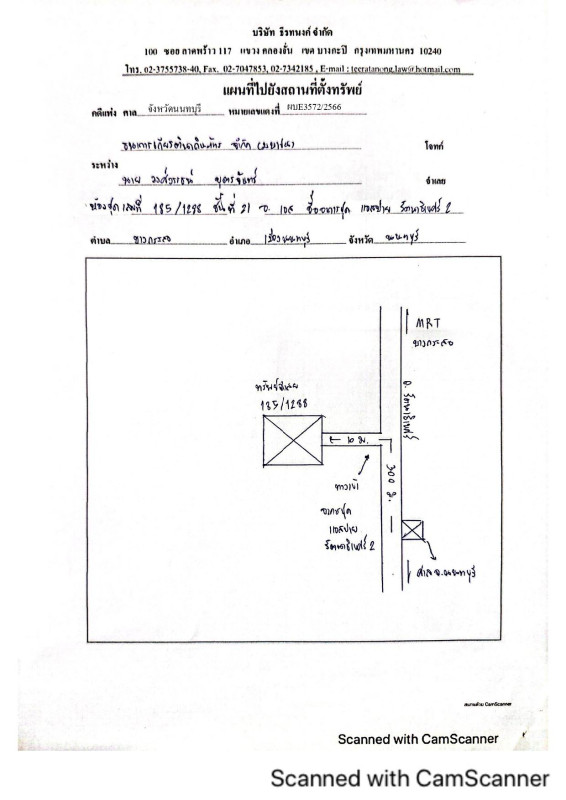 บริษัท ธีรทนงค์ จำกัด
100 ซอย ลาดพร้าว 117 แขวง คลองจั่น เขต บางกะปิ กรุงเทพมหานคร 10240
โทร. 02-3755738-40, Fax. 02-7047853, 02-7342185 , E-mail : teeratanong.law@hotmail.com
แผนที่ไปยังสถานที่ตั้งทรัพย์
คดีแพ่ง ศาล จังหวัดนนทบุรี หมายเลขแดงที่ ผบE3572/2566
ธนาคารเกียรตินาคินภัทร จำกัด (มหาชน) โจทก์
ระหว่าง
นาย จำเลย
ห้องชุด เลขที่ 185/1288 ชั้นที่ 21 อ. เอส ชื่ออาคารชุด แอสปาย รัตนาธิเบศร์ 2
ตำบล บางกระสอ อำเภอ เมืองนนทบุรี จังหวัด นนทบุรี
MRT
บางกระสอ
ถ. รัตนาธิเบศร์
ทรัพย์จำนอง
185/1288
10 ม.
300 ม.
ทางเข้า
อาคารชุด
แอสปาย
รัตนาธิเบศร์ 2
ศาล จ.นนทบุรี
สแกนด้วย CamScanner
Scanned with CamScanner
Scanned with CamScanner